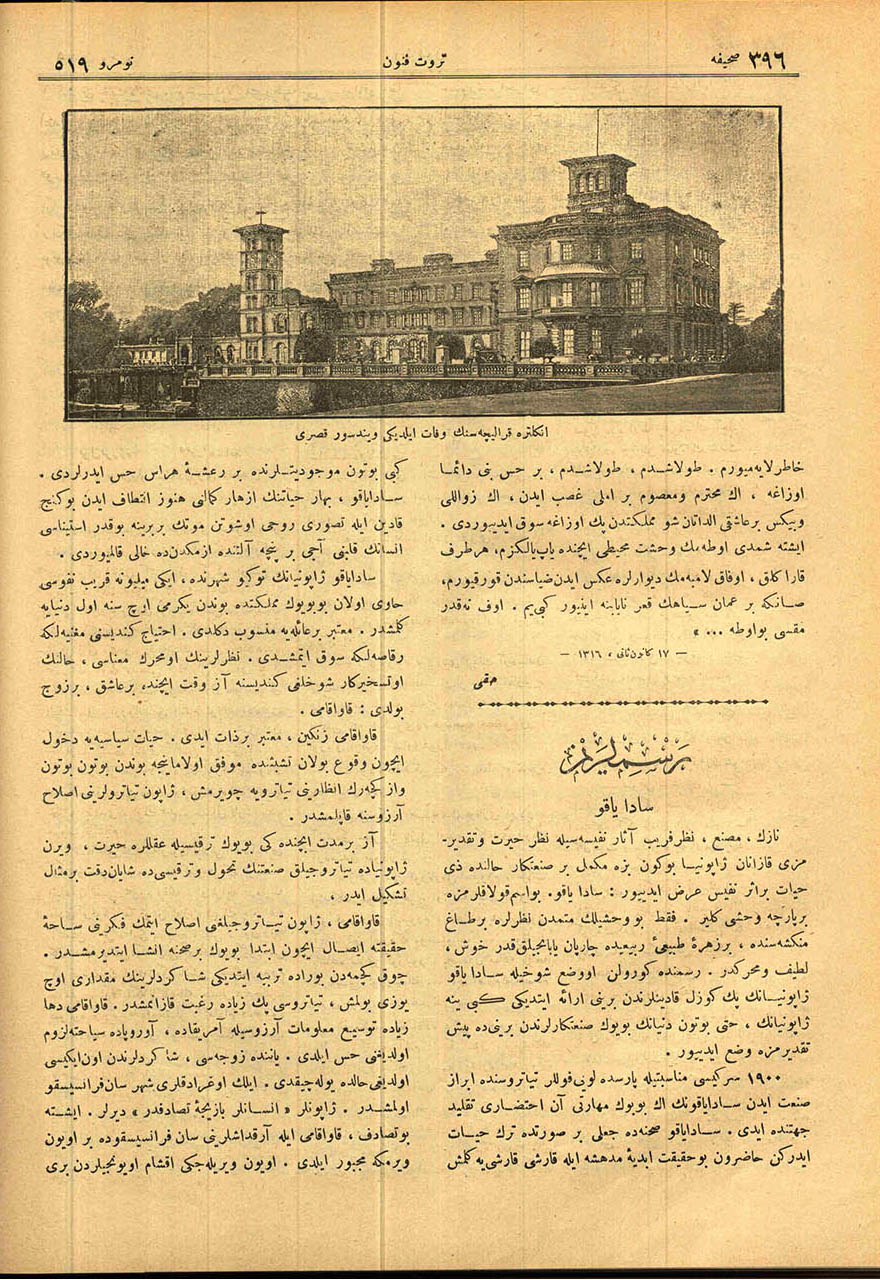 صحیفه ۳۹۶
ثروت فنون
نومرو ۵۱۹
انكلتره قرالیچه‌سنك وفات ایلدیكی ویندسور قصری
خاطرلایه‌میورم . طولاشدم ، طولاشدم ، بر حس بنی دائما
اوزاغه ، اك محترم ومعصوم بر املی غصب ایدن ، اك زواللی
وبیكس برعاشقی الداتان شو مملكتدن پك اوزاغه سوق ایدییوردی .
ایشته شمدی اوطه‌مك وحشت محیطی ایچنده یاپ‌یالكزم، هر طرف
قارا كلق ، اوفاق لامبه‌مك دیوارلره عكس ایدن ضیاسندن قورقیورم،
صانكه بر عمان سیاهك قعر نایابنه اینیور كبی‌یم . اوف نه‌قدر
مقسی بواوطه ... »
— ۱۷ كانون ثانی ، ۱۳۱۶ —
حقی
رسملریمز
سادا یاقو
نازك ، مصنع ، نظرفریب آثار نفیسه‌سیله نظر حیرت وتقدیر-
مزی قازانان ژاپونیا بوكون بزه مكمل بر صنعتكار حالنده ذی
حیات براثر نفیس عرض ایدییور : سادا یاقو. بواسم قولاقلرمزه
برپارچه وحشی كلیر . فقط بو وحشیلك متمدن نظرلره برطاغ
منكشه‌سنده ، برزهرهٔ طبیعیٔ ربیعیده چارپان یابانجیلق‌قدر خوش ،
لطیف ومحركدر . رسمنده كورولن اووضع شوخیله سادا یاقو
ژاپونیانك پك كوزل قادینلرندن برینی ارائه ایتدیكی كبی ینه
ژاپونیانك ، حتی بوتون دنیانك بویوك صنعتكارلرندن برینی‌ده پیش
تقدیرمزه وضع ایدییور .
۱۹۰۰ سركیسی مناسبتیله پارسده لویی‌فوللر تیاتروسنده ابراز
صنعت ایدن سادایاقونك اك بویوك مهارتی آن احتضاری تقلید
جهتنده ایدی . سادایاقو صحنه‌ده جعلی بر صورتده ترك حیات
ایدركن حاضرون بوحقیقت ابدیهٔ مدهشه ایله قارشی قارشی‌یه كلمش
كبی بوتون موجودیتلرنده بر رعشهٔ هراس حس ایدرلردی .
سادایاقو ، بهار حیاتنك ازهار كمالی هنوز انتطاف ایدن بوكنج
قادین ایله تصوری روحی اوشوتن موتك بربرینه بوقدر استیناسی
انسانك قلبنی آجی بر پنچه آلتنده ازمكدن‌ده خالی قالمیوردی .
سادایاقو ژاپونیانك توكیو شهرنده ، ایكی میلیونه قریب نفوسی
حاوی اولان بوبویوك مملكتده بوندن یكرمی اوچ سنه اول دنیایه
كلمشدر . معتبر برعائله‌یه منسوب دكلدی . احتیاج كندیسنی مغنیه‌لكه
رقاصه‌لكه سوق ایتمشدی . نظرلرینك اومحرك معناسی ، حالنك
اوتسخیركار شوخلغی كندیسنه آز وقت ایچنده برعاشق ، برزوج
بولدی : قاواقامی .
قاواقامی زنكین ، معتبر برذات ایدی . حیات سیاسیه‌یه دخول
ایچون وقوع بولان تشبثنده موفق اولاماینجه بوندن بوتون بوتون
واز كچه‌رك انظارینی تیاترویه چویرمش ، ژاپون تیاترولرینی اصلاح
آرزوسنه قاپلمشدر .
آز برمدت ایچنده كی بویوك ترقیسیله عقللره حیرت ، ویرن
ژاپونیاده تیاتروجیلق صنعتنك تحول وترقیسی‌ده شایان‌دقت برمثال
تشكیل ایدر .
قاواقامی ، ژاپون تیاتروجیلغی اصلاح ایتمك فكرینی ساحهٔ
حقیقته ایصال ایچون ابتدا بویوك برصحنه انشا ایتدیرمشدر .
چوق كچمه‌دن بوراده تربیه ایتدیكی شاكردلرینك مقداری اوچ
یوزی بولمش ، تیاتروسی پك زیاده رغبت قازانمشدر . قاواقامی دها
زیاده توسیع معلومات آرزوسیله آمریقاده ، آوروپاده سیاحته‌لزوم
اولدیغنی حس ایلدی . یاننده زوجه‌سی ، شاكردلرندن اون‌ایكیسی
اولدیغی حالده یوله‌چیقدی . ایلك اوغرادقلری شهر سان‌فرانسیسقو
اولمشدر . ژاپونلر « انسانلر بازیچهٔ تصادفدر » دیرلر . ایشته
بوتصادف ، قاواقامی ایله آرقداشلرینی سان فرانسیسقوده بر اویون
ویرمكه مجبور ایلدی . اویون ویریله‌جكی اقشام اویونجیلردن بری